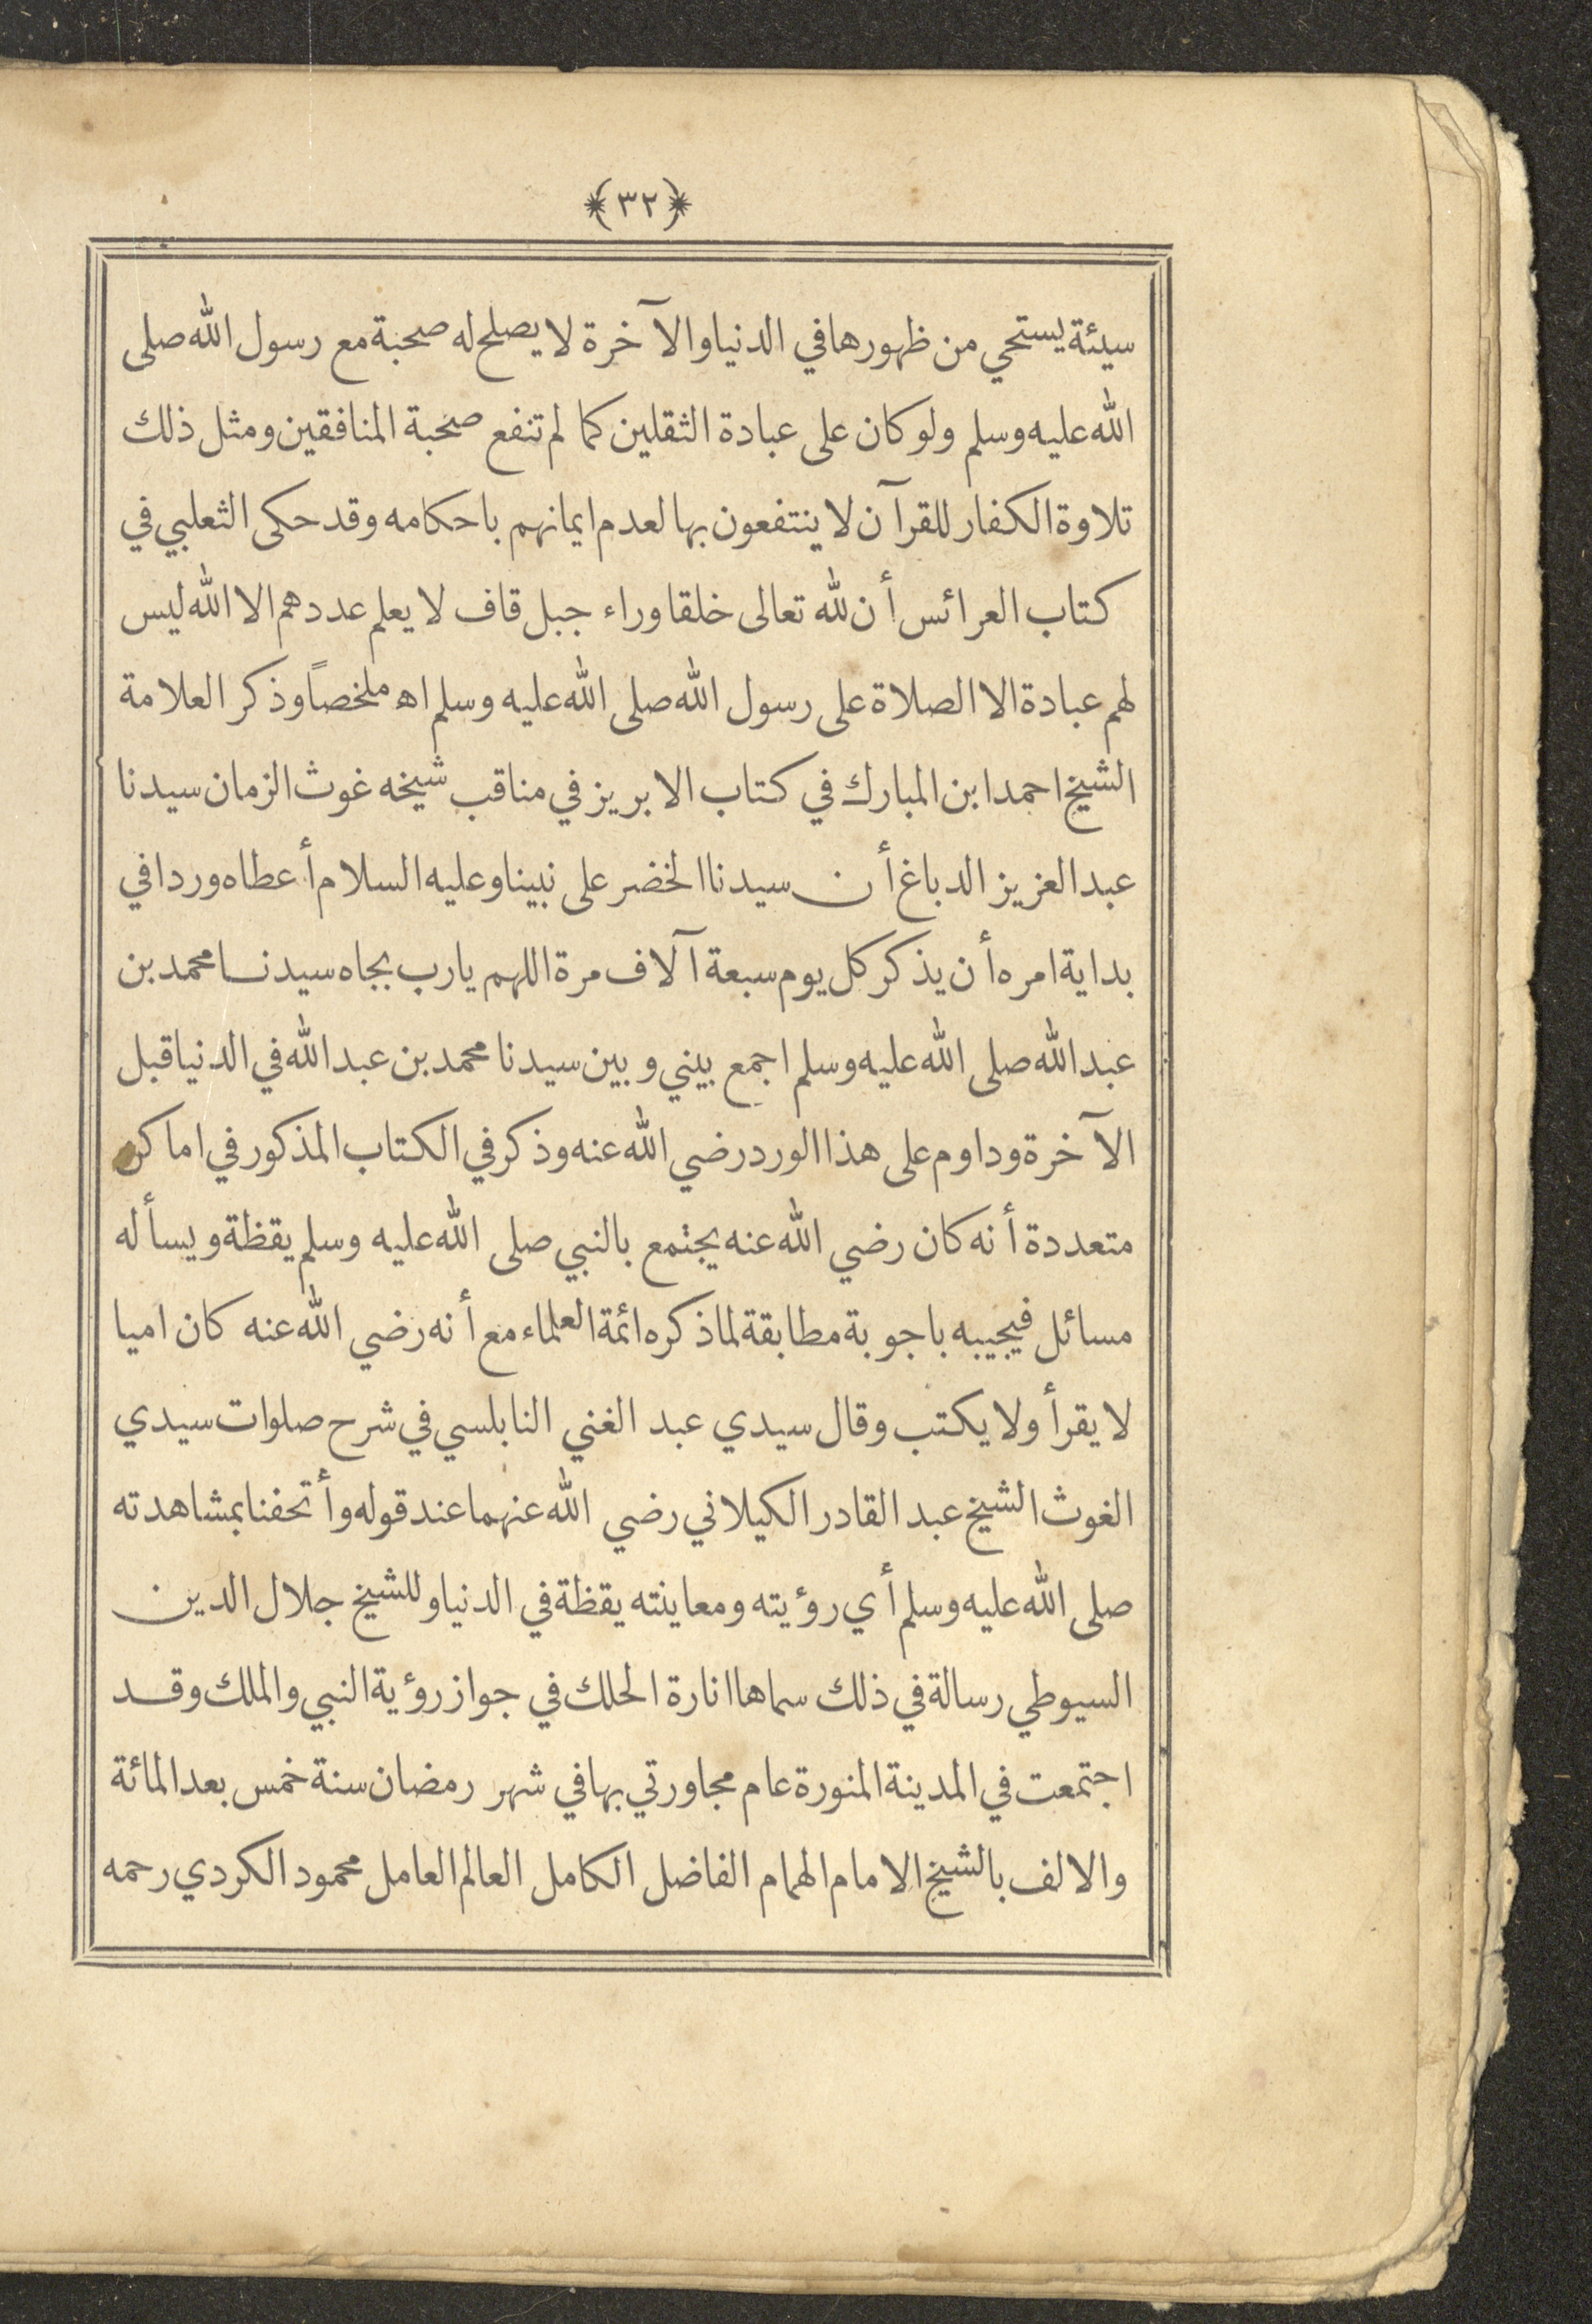 ﴿٣٢﴾
سيئة يستحي من ظهورها في الدنيا والآخرة لا يصلح له صحبة مع رسول الله صلى
الله عليه وسلم ولو كان على عبادة الثقلين كما لم تنفع صحبة المنافقين ومثل ذلك
تلاوة الكفار للقرآن لا ينتفعون بها لعدم ايمانهم باحكامه وقد حكى الثعلبي في
كتاب العرائس أن لله تعالى خلقا وراء جبل قاف لا يعلم عددهم الا الله ليس
لهم عبادة الا الصلاة على رسول الله صلى الله عليه وسلم اه ملخصاً وذكر العلامة
الشيخ احمد ابن المبارك في كتاب الابريز في مناقب شيخه غوث الزمان سيدنا
عبد العزيز الدباغ أن سيدنا الخضر على نبينا وعليه السلام أعطاه وردا في
بداية امره أن يذكر كل يوم سبعة آلاف مرة اللهم يا رب بجاه سيدنا محمد بن
عبد الله صلى الله عليه وسلم اجمع بيني وبين سيدنا محمد بن عبد الله في الدنيا قبل
الآخرة وداوم على هذا الورد رضي الله عنه وذكر في الكتاب المذكور في اماكن
متعددة أنه كان رضي الله عنه يجتمع بالنبي صلى الله عليه وسلم يقظة ويسأله
مسائل فيجيبه باجوبة مطابقة لما ذكره ائمة العلماء مع أنه رضي الله عنه كان اميا
لا يقرأ ولا يكتب وقال سيدي عبد الغني النابلسي في شرح صلوات سيدي
الغوث الشيخ عبد القادر الكيلاني رضي الله عنهما عند قوله وأتحفنا بمشاهدته
صلى الله عليه وسلم أي رؤيته ومعاينته يقظة في الدنيا وللشيخ جلال الدين
السيوطي رسالة في ذلك سماها انارة الحلك في جواز رؤية النبي والملك وقد
اجتمعت في المدينة المنورة عام مجاورتي بها في شهر رمضان سنة خمس بعد المائة
والالف بالشيخ الامام الهمام الفاضل الكامل العالم العامل محمود الكردي رحمه